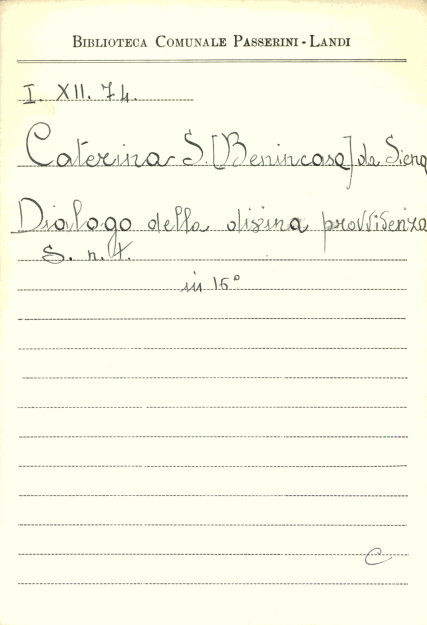 BIBLIOTECA COMUNALE PASSERINI - LANDI
I. XII. 74.
Caterina S. [Benincasa] da Siena
Dialogo della divina provvidenza
S. n. t.
in 16°
C